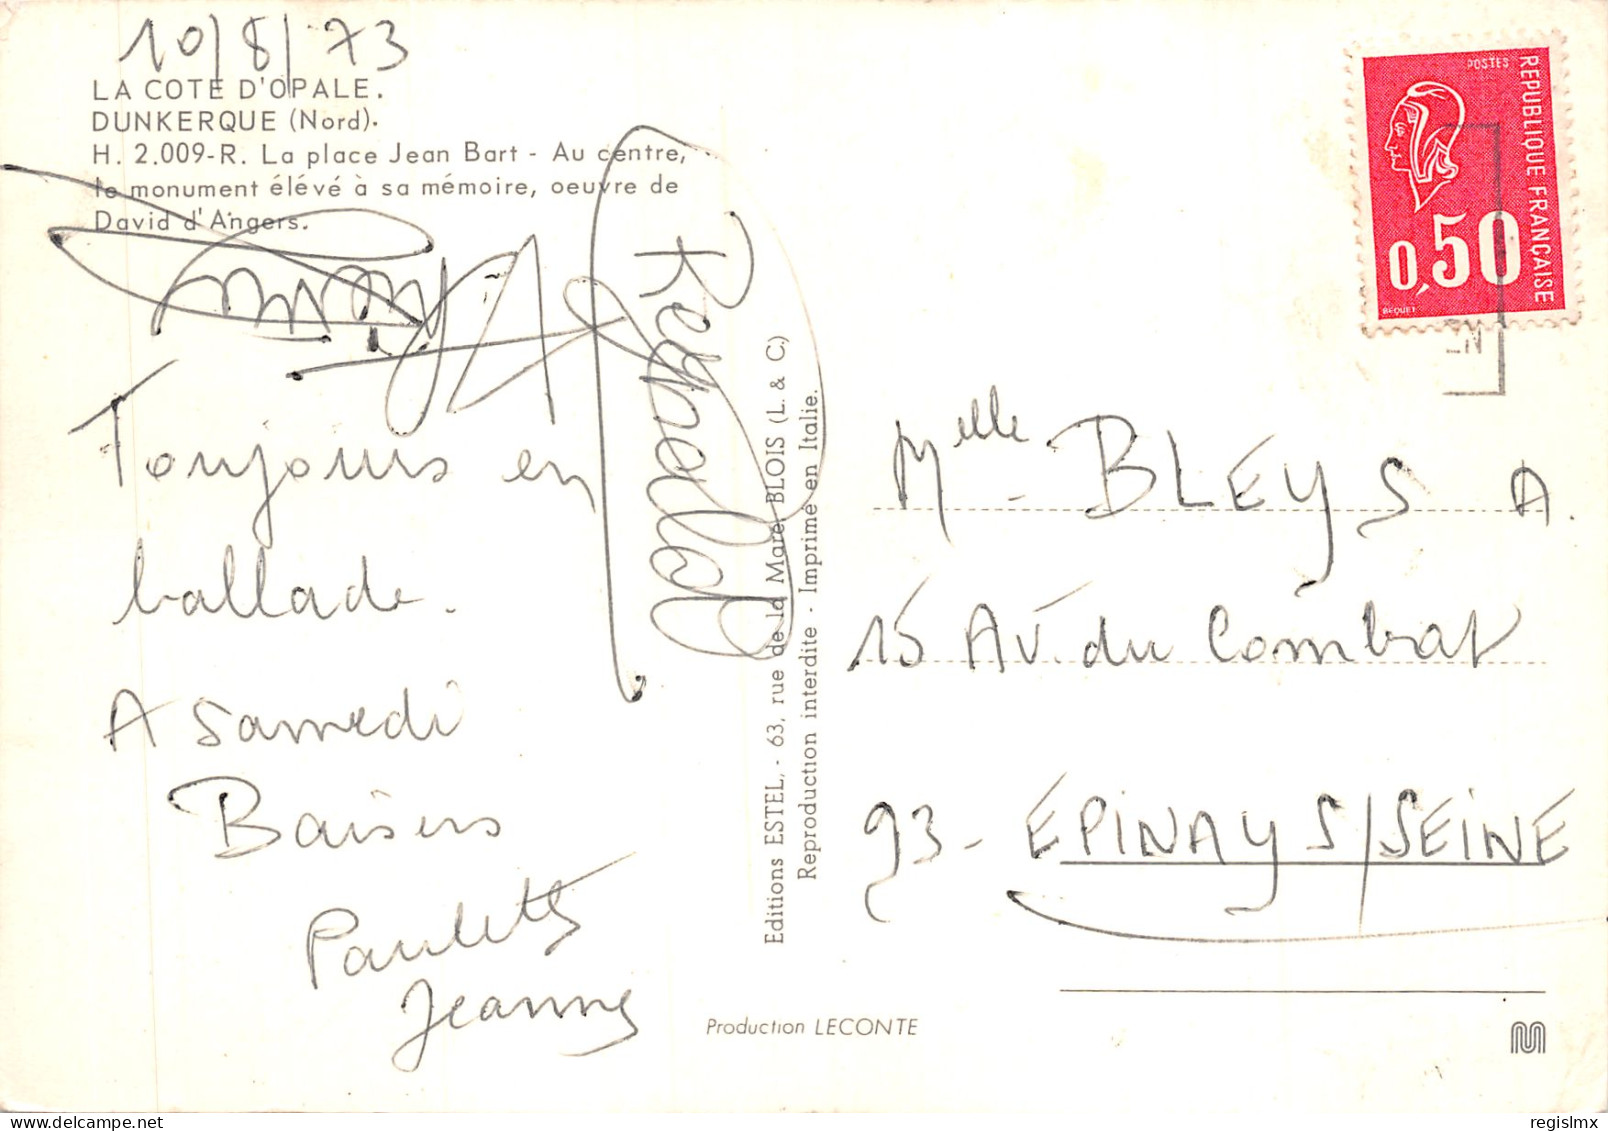 10/8/73
LA COTE D'OPALE.
DUNKERQUE (Nord).
H. 2.009-R. La place Jean Bart - Au centre,
le monument élévé à sa mémoire, oeuvre de
David d'Angers.
Toujours en
ballade.
A samedi
Baisers
Paulette
Jeanne
Editions ESTEL, - 63, rue de la Mare, BLOIS (L. & C.)
Reproduction interdite - Imprimé en Italie.
Production LECONTE
POSTES
REPUBLIQUE FRANÇAISE
0,50
BEQUET
EN
Melle BLEYS A.
15 AV. du Combat
93 - EPINAY S/SEINE
regislmx
delcampe.net